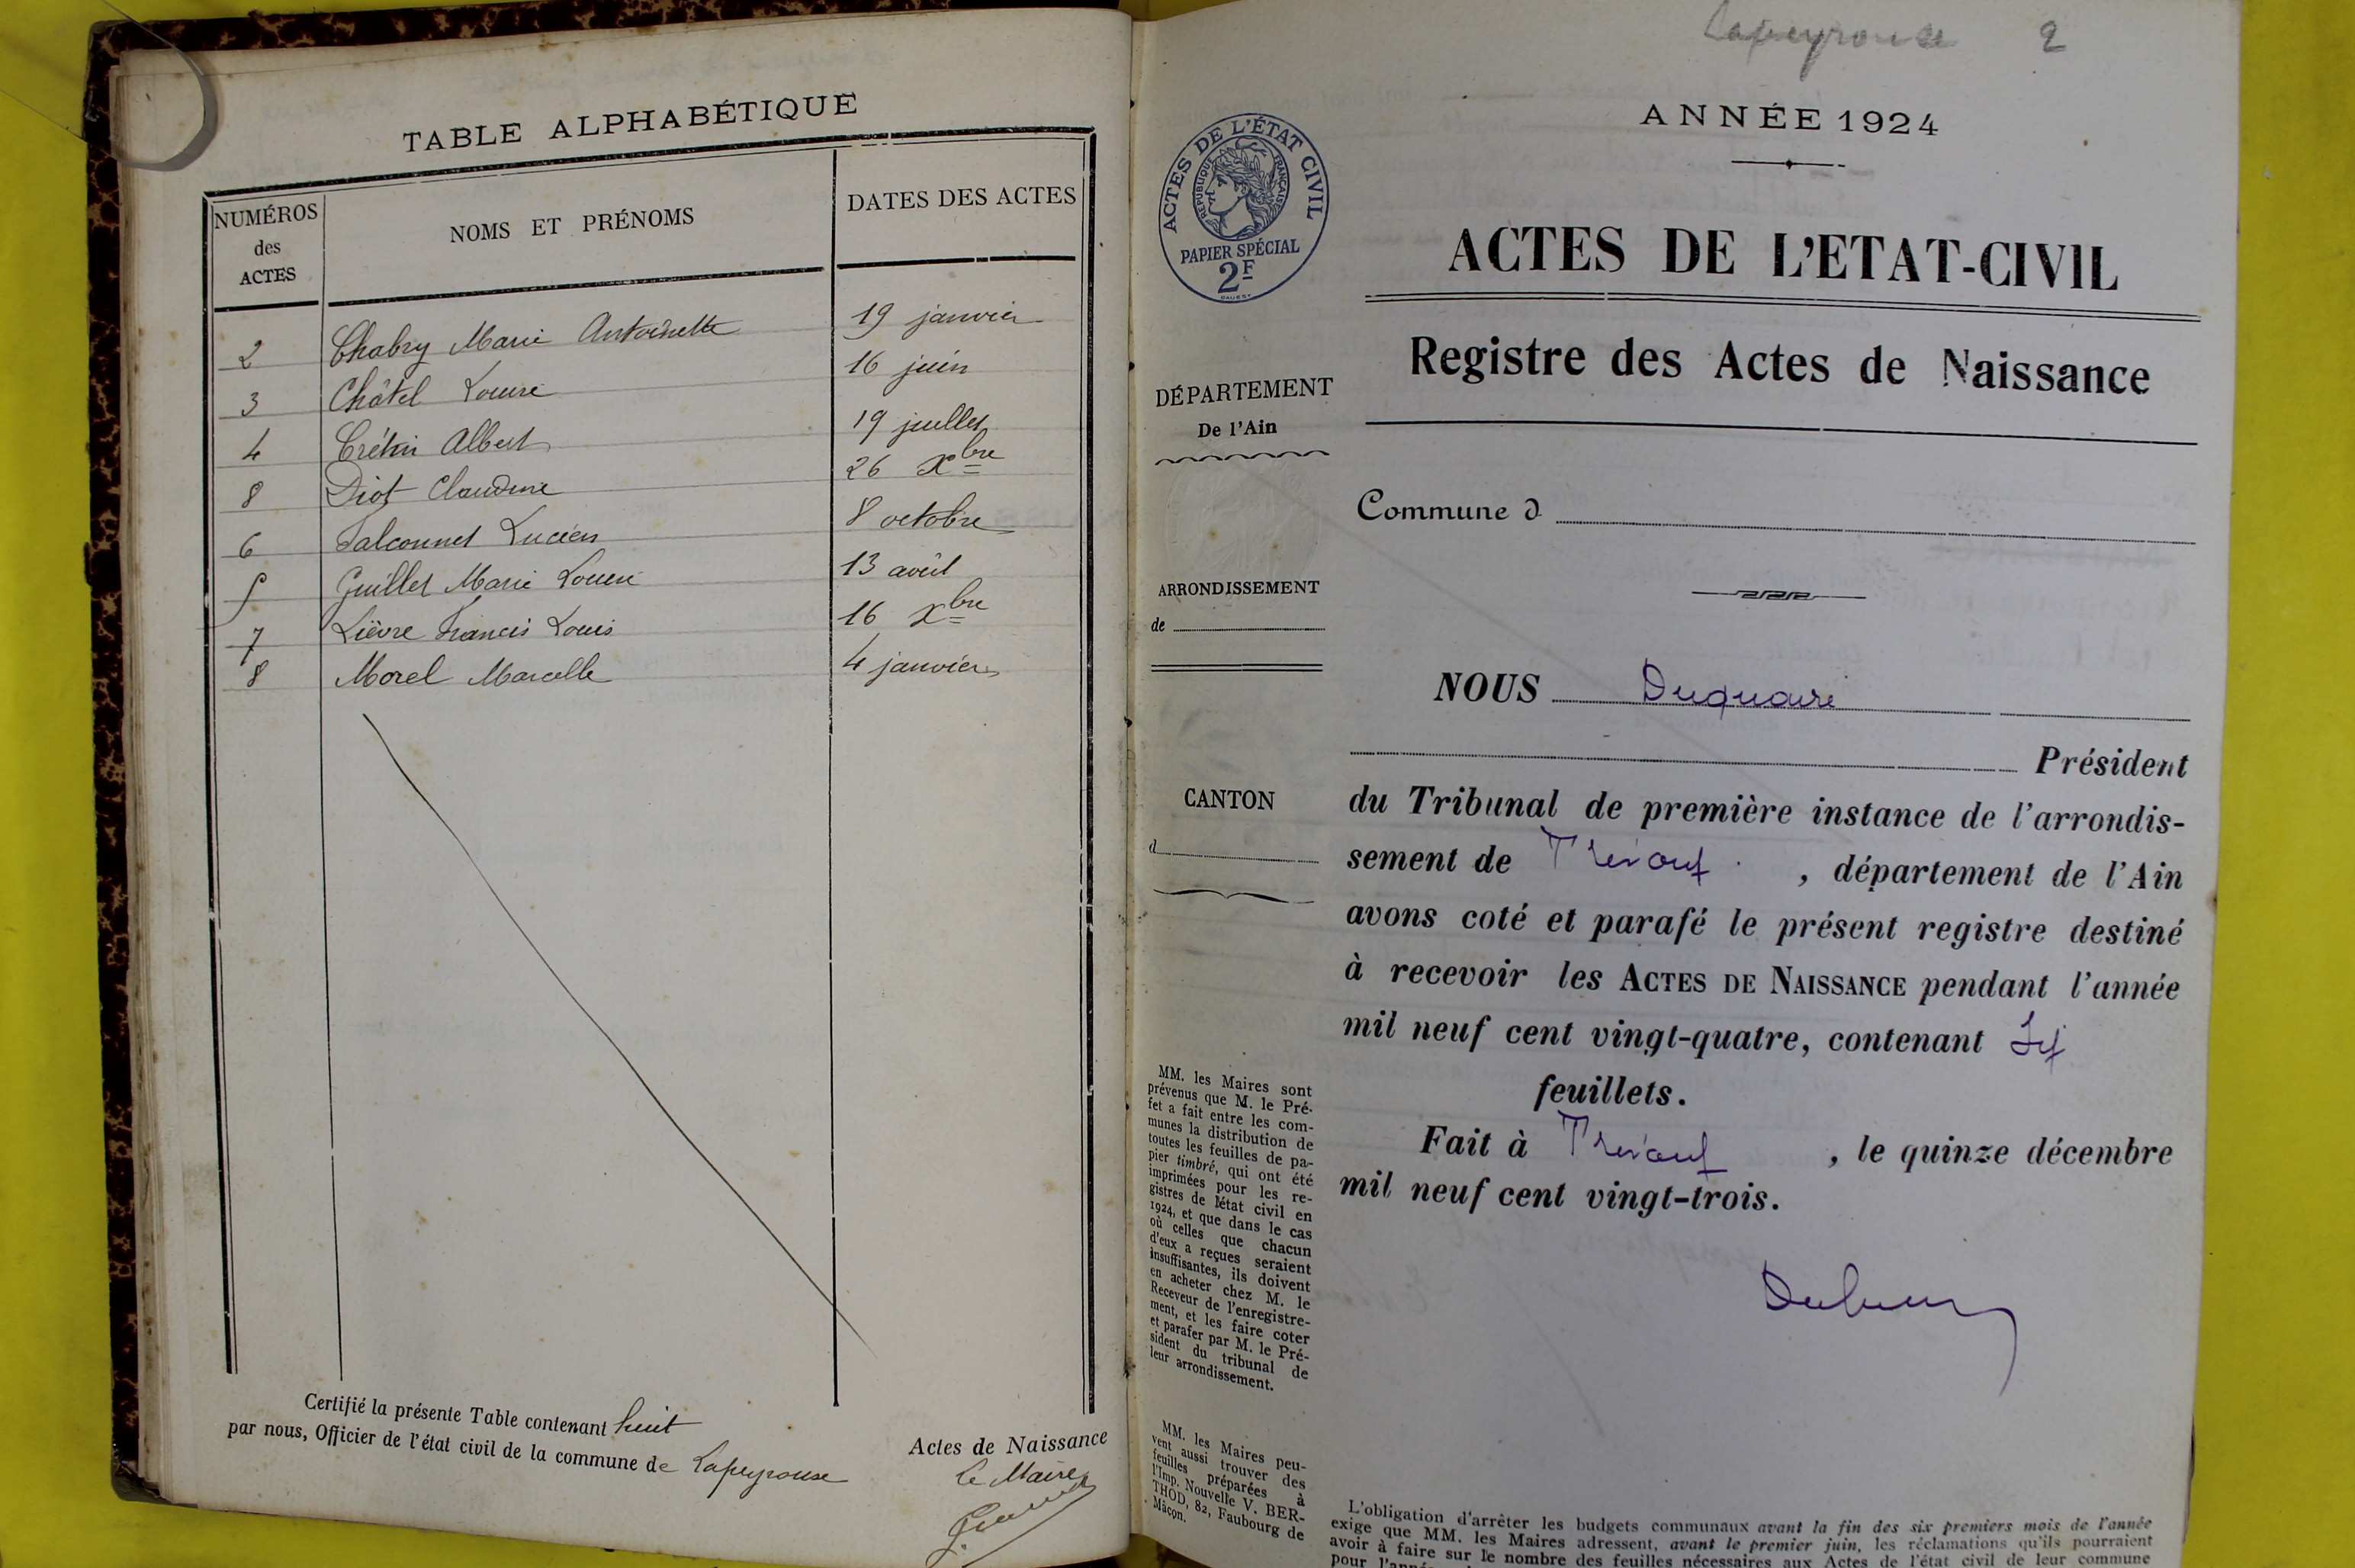 TABLE ALPHABÉTIQUE
NUMÉROS des ACTES NOMS ET PRÉNOMS DATES DES ACTES
2 Chabry Marie Antoinette 19 janvier
3 Châtel Louise 16 juin
4 Crétin Albert 19 juillet
8 Diot Claudine 26 Xbre
6 Falconnet Lucien 8 octobre
5 Guillet Marie Louise 13 août
7 Lièvre Francis Louis 16 Xbre
8 Morel Marcelle 4 janvier
Certifié la présente Table contenant huit Actes de Naissance
par nous, Officier de l'état civil de la commune de Lapeyrouse
Le Maire
Lapeyrouse 2
ANNÉE 1924
ACTES DE L'ÉTAT CIVIL
RÉPUBLIQUE FRANÇAISE
PAPIER SPÉCIAL
2F
ACTES DE L'ETAT-CIVIL
Registre des Actes de Naissance
DÉPARTEMENT
De l'Ain
Commune d
ARRONDISSEMENT
de
CANTON
d
NOUS Duquaire
Président
du Tribunal de première instance de l'arrondis-
sement de Trévoux, département de l'Ain
avons coté et parafé le présent registre destiné
à recevoir les ACTES DE NAISSANCE pendant l'année
mil neuf cent vingt-quatre, contenant Six
feuillets.
Fait à Trévoux, le quinze décembre
mil neuf cent vingt-trois.
MM. les Maires sont
prévenus que M. le Pré-
fet a fait entre les com-
munes la distribution de
toutes les feuilles de pa-
pier timbré, qui ont été
imprimées pour les re-
gistres de l'état civil en
1924, et que dans le cas
où celles que chacun
d'eux a reçues seraient
insuffisantes, ils doivent
en acheter chez M. le
Receveur de l'enregistre-
ment, et les faire coter
et parafer par M. le Pré-
sident du tribunal de
leur arrondissement.
MM. les Maires peu-
vent aussi trouver des
feuilles préparées à
l'Imp. Nouvelle V. BER-
THOD, 82, Faubourg de
Mâcon.
L'obligation d'arrêter les budgets communaux avant la fin des six premiers mois de l'année
exige que MM. les Maires adressent, avant le premier juin, les réclamations qu'ils pourraient
avoir à faire sur le nombre des feuilles nécessaires aux Actes de l'état civil de leur commune
pour l'année